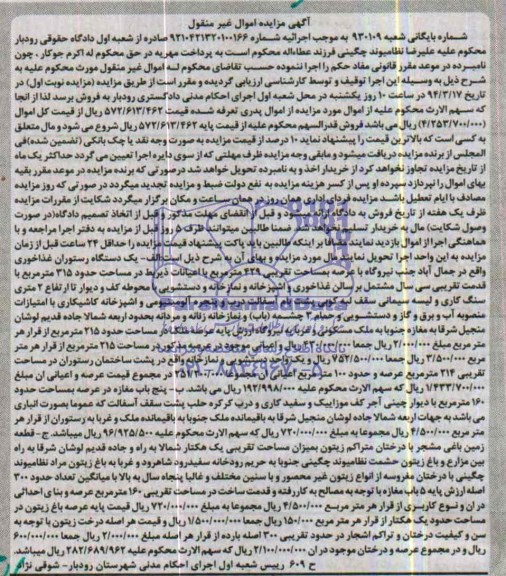 آگهی مزایده اموال غیر منقول
شماره بایگانی شعبه ۹۳۰۱۰۹ به موجب اجرائیه شماره ۹۲۱۰۴۲۱۳۲۰۱۰۰۱۶۶ صادره از شعبه اول دادگاه حقوقی رودبار
محکوم علیه علیرضا نظامیوند چگینی فرزند عطااله محکوم است به پرداخت مهریه در حق محکوم له اکرم جوکار . چون
نامبرده در موعد مقرر قانونی مفاد حکم را اجرا ننموده حسب تقاضای محکوم له اموال غیر منقول مورث محکوم علیه به
شرح ذیل به وسیله این اجرا توقیف و توسط کارشناسی ارزیابی گردیده و مقرر است از طریق مزایده (مزایده نوبت اول) در
تاریخ ۹۴/۳/۱۷ در ساعت ۱۰ روز یکشنبه در محل شعبه اول اجرای احکام مدنی دادگستری رودبار به فروش برسد لذا از انجا
که سهم الارث محکوم علیه از اموال مورد مزایده از اموال پدری تعرفه شده قیمت ۵۷۲/۶۱۳/۴۶۲ ریال از قیمت کل اموال
(۴/۲۵۳/۷۰۰/۰۰۰) ریال می باشد فروش قدرالسهم محکوم علیه از قیمت پایه ۵۷۲/۶۱۳/۴۶۲ ریال شروع می شود و مال متعلق
به کسی است که بالاترین قیمت را پیشنهاد نماید ۱۰ درصد از قیمت مزایده به صورت وجه نقد یا چک بانکی (تضمین شده) فی
المجلس از برنده مزایده دریافت میشود و مابقی وجه مزایده ظرف مهلتی که از سوی دایره اجرا تعیین می گردد حداکثر یک ماه
از تاریخ مزایده تجاوز نخواهد کرد از خریدار اخذ و به نامبرده تحویل خواهد شد در صورتی که برنده مزایده در موعد مقرر بقیه
بهای اموال را نپردازد سپرده او پس از کسر هزینه مزایده به نفع دولت ضبط و مزایده تجدید میگردد در صورتی که روز مزایده
مصادف با ایام تعطیل باشد مزایده فردای اداری همان روز در همان ساعت و مکان برگزار میگردد شکایت از مقررات مزایده
ظرف یک هفته از تاریخ فروش به دادگاه ارائه میشود و قبل از انقضای مهلت مذکور و قبل از اتخاذ تصمیم دادگاه (در صورت
وصول شکایت) مال به خریدار تسلیم نخواهد شد ضمنا طالبین میتوانند ظرف ۵ روز قبل از مزایده به دفتر اجرا مراجعه و با
هماهنگی اجرا از اموال بازدید نمایند مضافا بر اینکه طالبین باید پاکت پیشنهاد قیمت مزایده را حداقل ۲۴ ساعت قبل از زمان
مزایده به این واحد اجرا تحویل نمایند مال مورد مزایده و بهای آن به شرح ذیل است الف - یک دستگاه رستوران غذاخوری
واقع در جمال آباد جنب نیروگاه با عرصه بمساحت تقریبی ۴۲۹ مترمربع با اعیانات ذیربط در مساحت حدود ۳۱۵ مترمربع با
قدمت تقریبی سی سال مشتمل بر سالن غذاخوری و اشپزخانه و نمازخانه و دستشویی و محوطه کف و دیوار تا ارتفاع ۲ متری
سنگ کاری و لیسه سیمانی سقف
منصوبه آب و برق و گاز و دستشویی و حمام ۳ چشمه (باب) و نمازخانه زنانه و مردانه بحدود اربعه شمالا جاده قدیم لوشان
منجیل شرقا به مغازه جنوبا به ملک مسکونی و غربا به نیروگاه ارزش پایه عرصه ملک در مساحت حدود ۲۱۵ مترمربع از قرار هر
مترمربع مبلغ ۲/۰۰۰/۰۰۰ ریال جمعا واعیانی موجود در عرصه در مساحت حدود ۲۱۵ مترمربع از قرار هر متر
مربع ۳/۵۰۰/۰۰۰ ریال جمعا ۷۵۲/۵۰۰/۰۰۰ ریال و یک واحد دستشویی و نمازخانه واقع در پشت ساختمان رستوران در مساحت
تقریبی ۲۱۴ مترمربع عرصه و حدود ۱۰۰ مترمربع اعیانی مجموعا ریال در مجموع قیمت عرصه و اعیانی آن مبلغ
۱/۴۳۳/۷۰۰/۰۰۰ ریال که سهم الارث محکوم علیه ۱۹۲/۹۹۸/۰۰۰ ریال می باشد ب - پنج باب مغازه در عرصه بمساحت حدود
۱۶۰ مترمربع با دیوار چینی آجر کف موزاییک و سفید کاری و درب کرکره حلب پوش سقف آسفالت که عموما بصورت انباری
می باشد به جهات اربعه شمالا جاده قدیم لوشان منجیل شرقا به باقیمانده ملک جنوبا به باقیمانده ملک و غربا به رستوران از قرار هر
متر مربع ۴/۵۰۰/۰۰۰ ریال مجموعا به مبلغ ۷۲۰/۰۰۰/۰۰۰ ریال که سهم الارث محکوم علیه ۹۶/۹۲۵/۵۰۰ ریال میباشد. ج - قطعه
زمین باغی مشجر با درختان متراکم زیتون بمیزان مساحت تقریبی یک هکتار شمالا به راه و جاده قدیم لوشان شرقا به راه
بین مزارع و باغ زیتون حشمت نظامیوند چگینی جنوبا به حریم رودخانه سفیدرود شاهرود و غربا به باغ زیتون مراد نظامیوند
چگینی با درختان مغروسه از انواع زیتون غیر محصور و با سنین مختلف و غالبا پنجاه سال به بالا با میانگین تعداد حدود ۳۰۰
اصله ارزش پایه ۵ باب مغازه با توجه به مصالح به کاررفته و قدمت ساخت در مساحت تقریبی ۱۶۰ مترمربع عرصه و بنای احداثی
در آن و نوع کاربری از قرار هر متر مربع ۴/۵۰۰/۰۰۰ ریال مجموعا به مبلغ ۷۲۰/۰۰۰/۰۰۰ ریال قیمت پایه عرصه باغ زیتون در
مساحت حدود یک هکتار از قرار هر متر مربع ۱۵۰/۰۰۰ ریال جمعا ۱/۵۰۰/۰۰۰/۰۰۰ ریال و قیمت هر اصله درخت زیتون با توجه به
سن و کیفیت درختان و تراکم اشجار در حدود تقریبی ۳۰۰ اصله بارده از قرار هر اصله مبلغ ۲/۰۰۰/۰۰۰ ریال جمعا ۶۰۰/۰۰۰/۰۰۰
ریال و در مجموع عرصه و درختان موجود در آن ۲/۱۰۰/۰۰۰/۰۰۰ ریال که سهم الارث محکوم علیه ۲۸۲/۶۸۹/۹۶۲ ریال میباشد.
ح ۶۰۹ رییس شعبه اول اجرای احکام مدنی شهرستان رودبار- شوقی نژاد